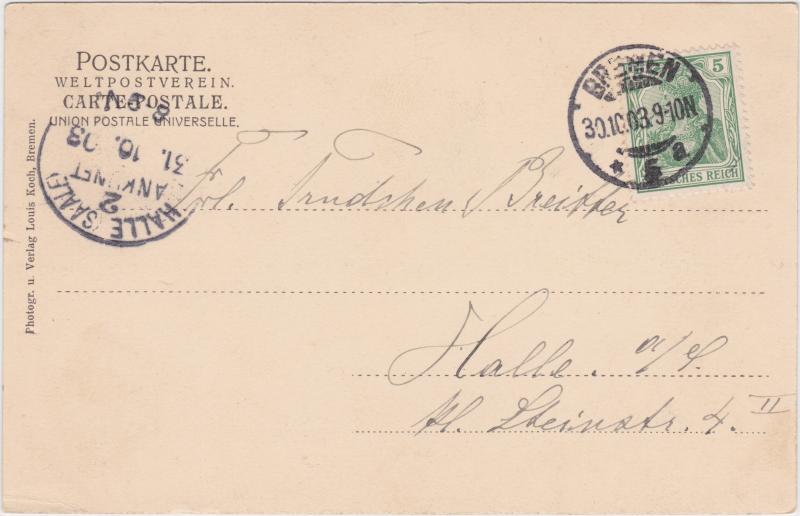 POSTKARTE.
WELTPOSTVEREIN.
CARTE POSTALE.
UNION POSTALE UNIVERSELLE.
Photogr. u. Verlag Louis Koch, Bremen.
HALLE (SAALE)
2
ANKUNFT
31. 10. 03
8
BREMEN
30.10.03.9-10N
* 5 a
5
DEUTSCHES REICH
Frl. Trudchen Breitter
Halle. a/S.
kl. Steinstr. 4. II